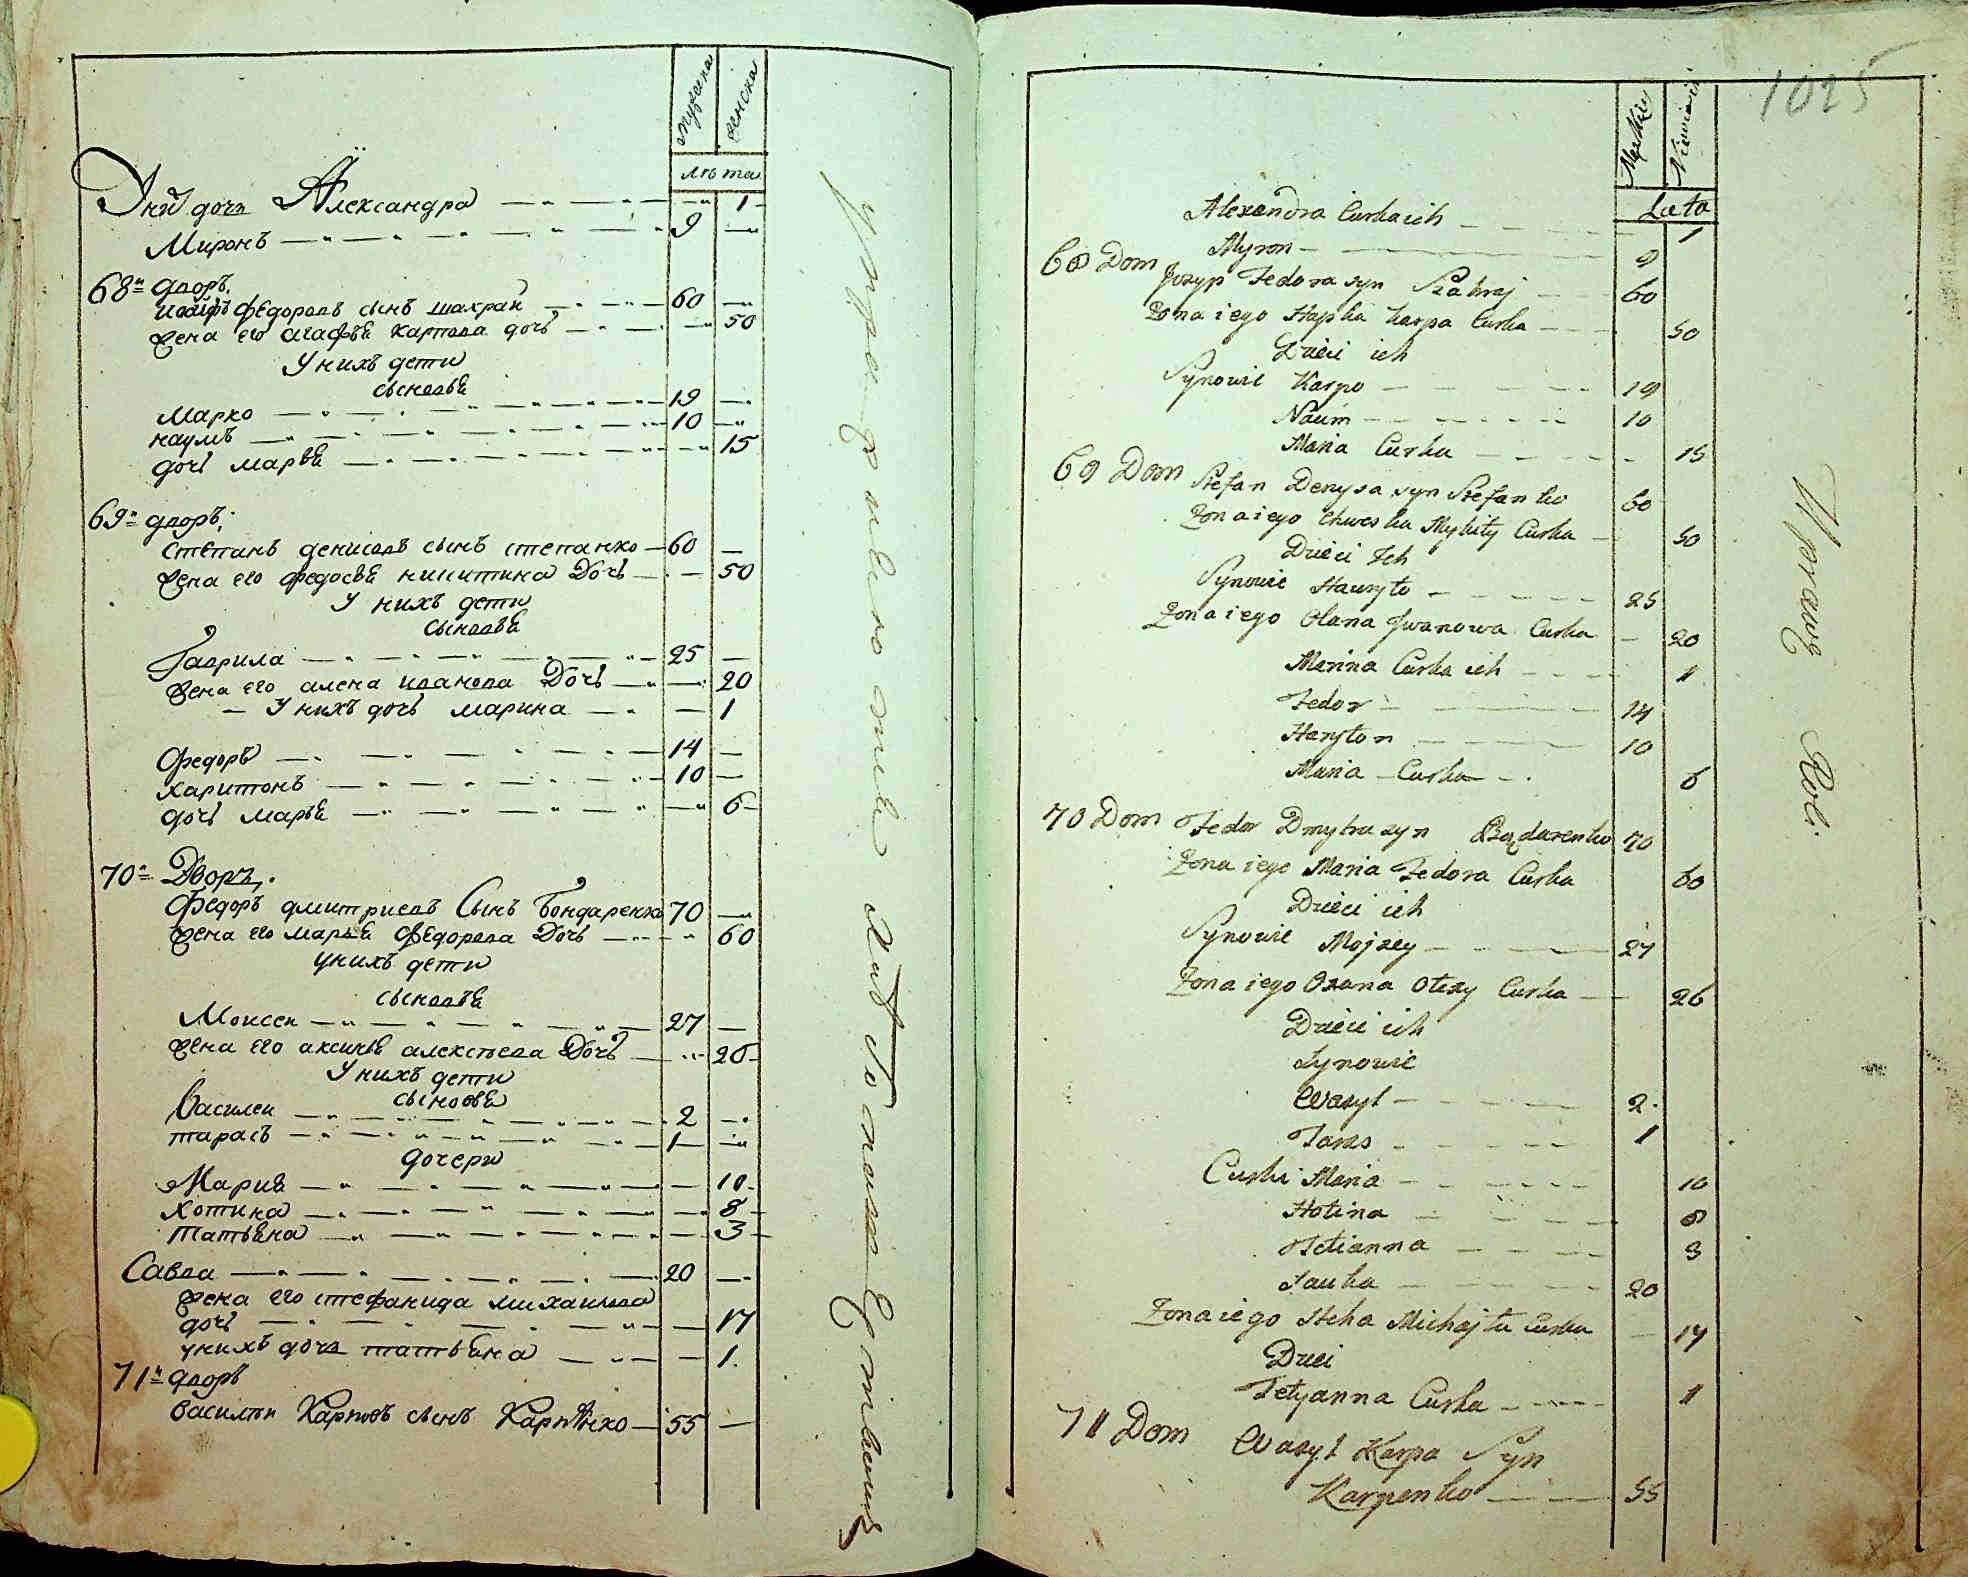 мужска
женска
лѣта
У ний дочь Александра 1
Миронъ 9
68й дворъ.
иосифъ федоровъ сынъ шахрай 60
жена его агафья карпова дочь 50
У нихъ дети
сыновья
Марко 19
наумъ 10
дочь марья 15
69й дворъ.
степанъ денисовъ сынъ степанко 60
жена его федосья никитина Дочь 50
У нихъ дети
сыновья
Гаврила 25
жена его алена иванова Дочь 20
У нихъ дочь марина 1
федоръ 14
харитонъ 10
дочь марья 6
70й Дворъ.
Федоръ дмитриевъ Сынъ Бондаренко 70
жена его марья Федорова Дочь 60
У нихъ дети
сыновья
Моисей 27
жена его аксинья алексеева Дочь 26
У нихъ дети
сыновья
Василей 2
тарасъ 1
дочери
Мария 10
хотина 8
татьяна 3
Савва 20
жена его стефанида михаилова
дочь 17
у нихъ дочь татьяна 1
71й дворъ
василѣй Карповъ сынъ Карпѣнко 55
1025
Męzkiey
Lata
Alexandra Curka ich 1
Myron 9
68 Dom
Jozyp Fedora syn Szahraj 60
Zona iego Hapka Karpa Curka 50
Dzieci ich
Synowie Karpo 19
Naum 10
Maria Curka 15
69 Dom Stefan Denysa syn Stefanko 60
Zona iego Chweska Mykity Curka 50
Dzieci Ich
Synowie Hawryło 25
Zona iego Olana Jwanowa Curka 20
Marina Curka ich 1
Fedor 14
Haryton 10
Maria Curka 6
70 Dom Fedor Dmytra syn Bądarenko 70
Zona iego Maria Fedora Curka 60
Dzieci ich
Synowie Mojzey 27
Zona iego Oxana Olexy Curka 26
Dzieci ich
Synowie
Wasyl 2
Taras 1
Curki Maria 10
Hotina 8
Tetianna 3
Sauka 20
Zona iego Steha Michajła Curka 17
Dzieci
Tetyanna Curka 1
71 Dom Wasyl Karpa Syn
Karpenko 55